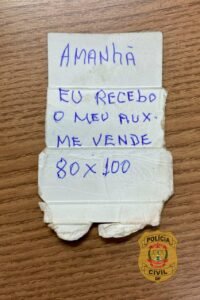 AMANHÃ
EU RECEBO
O MEU AUX-
ME VENDE
80 X 100
POLÍCIA
CIVIL
DF